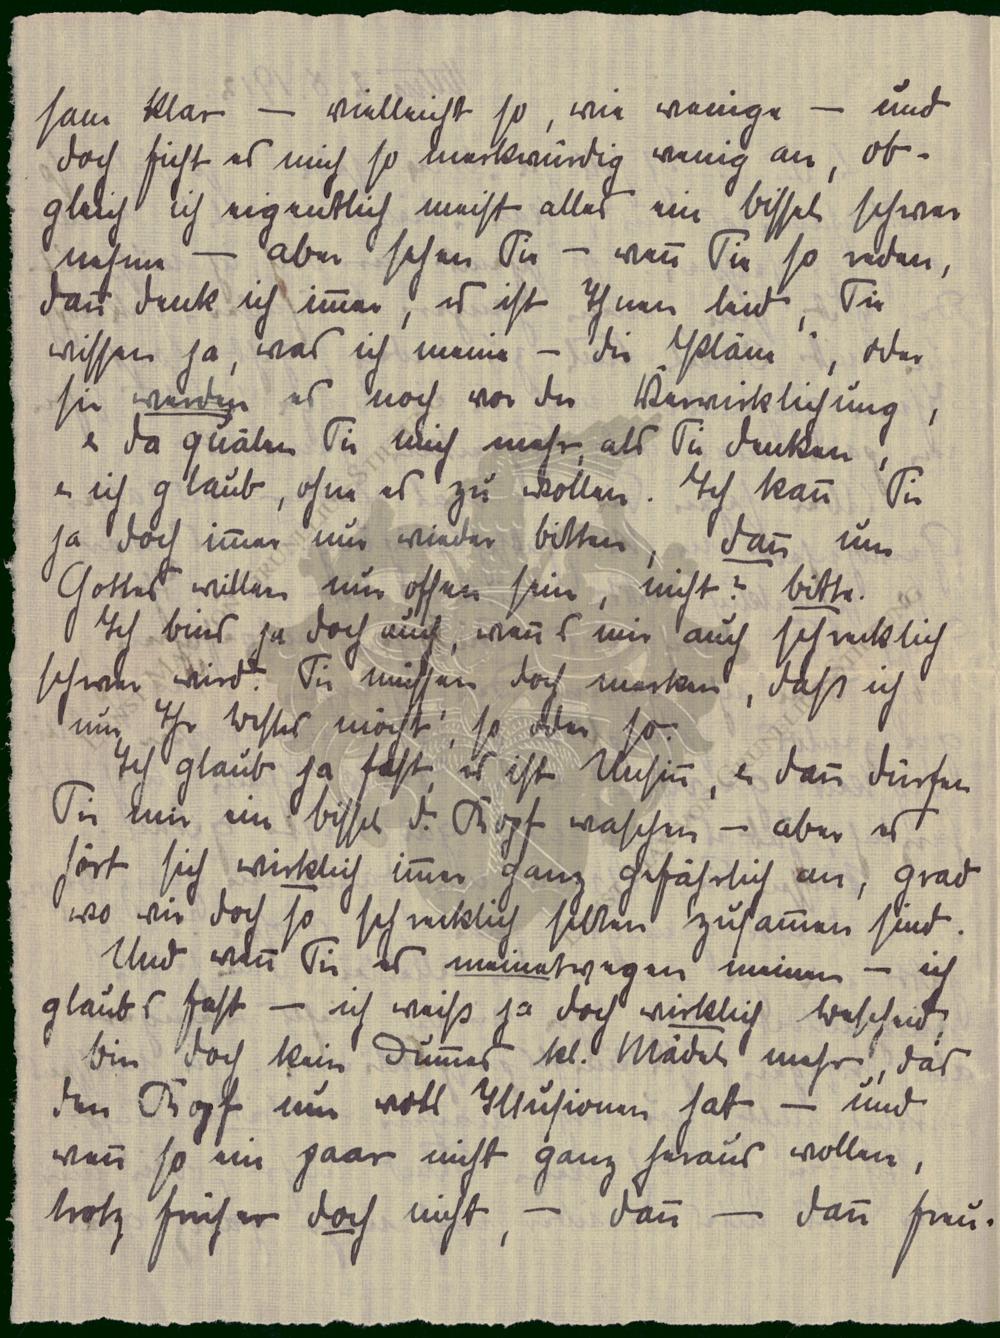 sam klar — vielleicht so, wie wenige — und
doch ficht es mich so merkwürdig wenig an, ob-
gleich ich eigentlich meist alles ein bissel schwer
nehme — aber sehen Sie — weñ Sie so reden,
dañ denk ich im̄er, es ist Ihnen leid, Sie
wissen ja, was ich meine — die „Pläne“, oder
sie werden es noch vor der Verwirklichung,
u da quälen Sie mich mehr, als Sie denken,
u ich glaub, ohne es zu wollen. Ich kañ Sie
ja doch im̄er nur wieder bitten, dañ um
Gottes willen nur offen sein, nicht? bitte.
Ich bins ja doch auch, weñs mir auch schrecklich
schwer wird. Sie müssen doch merken, daß ich
nur Ihr Bestes möcht', so oder so.
Ich glaub ja fast, es ist Unsiñ, u dañ dürfen
Sie mir ein bissel d. Kopf waschen — aber es
hört sich wirklich im̄er ganz gefährlich an, grad
wo wir doch so schrecklich selten zusam̄en sind.
Und weñ Sie es meinetwegen meinen — ich
glaubs fast — ich weiß ja doch wirklich bescheid,
bin doch kein dum̄es kl. Mädel mehr, das
den Kopf nur voll Illusionen hat — und
weñ so ein paar nicht ganz heraus wollen,
trotz früher doch nicht, — dañ — dañ freu-